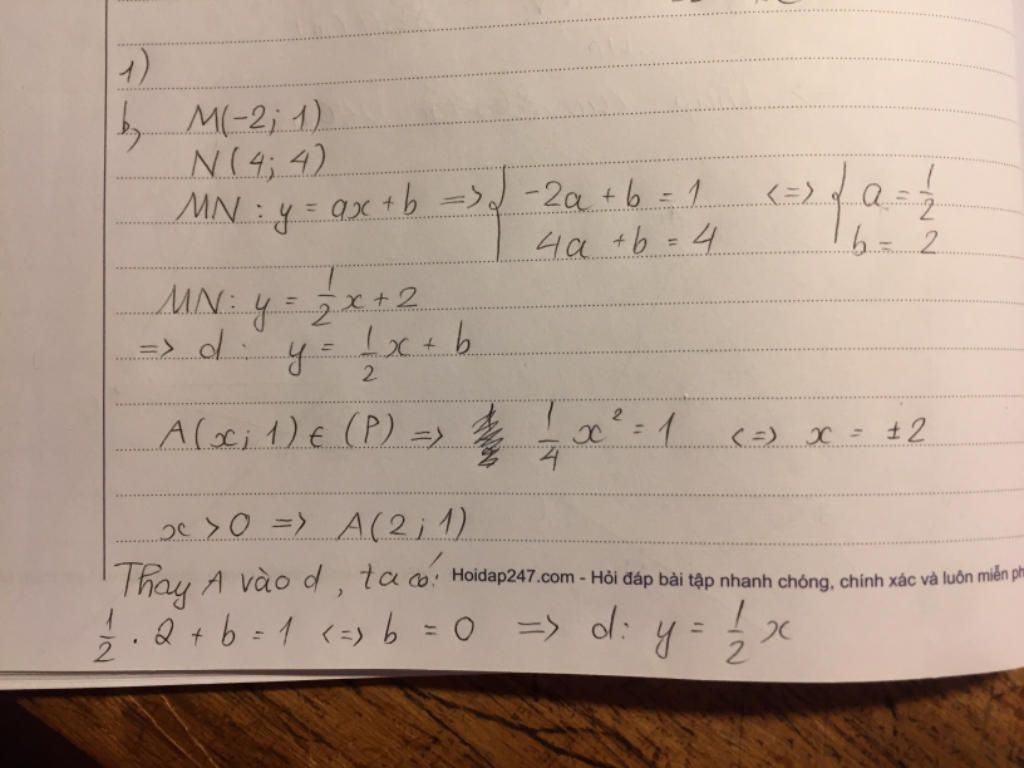 1)
b, M(-2; 1)
N(4; 4)
MN: y = ax + b => { -2a + b = 1 <=> { a = 1/2
4a + b = 4 b = 2
MN: y = 1/2 x + 2
=> d: y = 1/2 x + b
A(x; 1) ∈ (P) => 1/4 x² = 1 <=> x = ±2
x > 0 => A(2; 1)
Thay A vào d, ta có:
Hoidap247.com - Hỏi đáp bài tập nhanh chóng, chính xác và luôn miễn ph
1/2 . 2 + b = 1 <=> b = 0 => d: y = 1/2 x